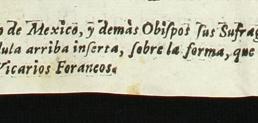 de Mexico, y demàs Obispos sus Sufrag
dula arriba inserta, sobre la forma, que
Vicarios Foraneos.